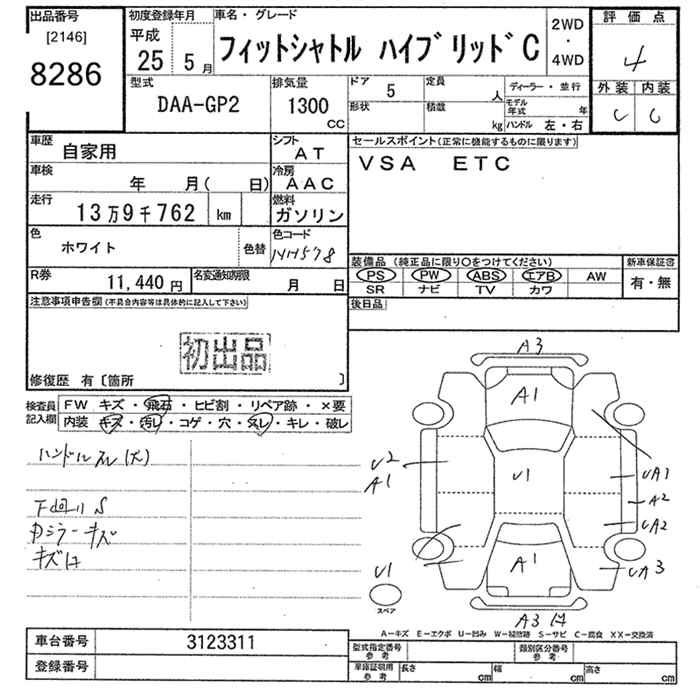 出品番号 初度登録年月 車名・グレード 2WD 評価点
[2146] 平成 フィットシャトル ハイブリッドC ・ 4
8286 25 5月 4WD
型式 排気量 ドア 5 定員 人 ディーラー・並行 外装 内装
DAA-GP2 1300 CC 形状 積載 kg モデル年式 年 C C
ハンドル 左・右
車歴 自家用 シフト AT セールスポイント(正常に機能するものに限ります)
車検 年 月( 日) 冷房 AAC VSA ETC
走行 13万9千762 km 燃料 ガソリン
色 ホワイト 色替 色コード NH578 装備品 (純正品に限り○をつけてください) 新車保証書
PS PW ABS エアB AW 有・無
R券 11,440円 名変通知期限 月 日 SR ナビ TV カワ
注意事項申告欄(不具合内容等は具体的に記入して下さい) 後日品
初出品
修復歴 有〔箇所 〕
検査員 FW キズ・飛石・ヒビ割・リペア跡・×要
記入欄 内装 キズ・汚レ・コゲ・穴・スレ・キレ・破レ
ハンドルスレ(大)
下回リS
ミラーキズ
キズ
A3
A1
U2
A1
U1
UA1
A2
UA2
A1
UA3
U1
スペア
A3
A―キズ E―エクボ U―凹み W―補修跡 S―サビ C―腐食 XX―交換済
車台番号 3123311 型式指定番号 参考 類別区分番号 参考
登録番号 車庫証明用 参考 長さ cm 幅 cm 高さ cm